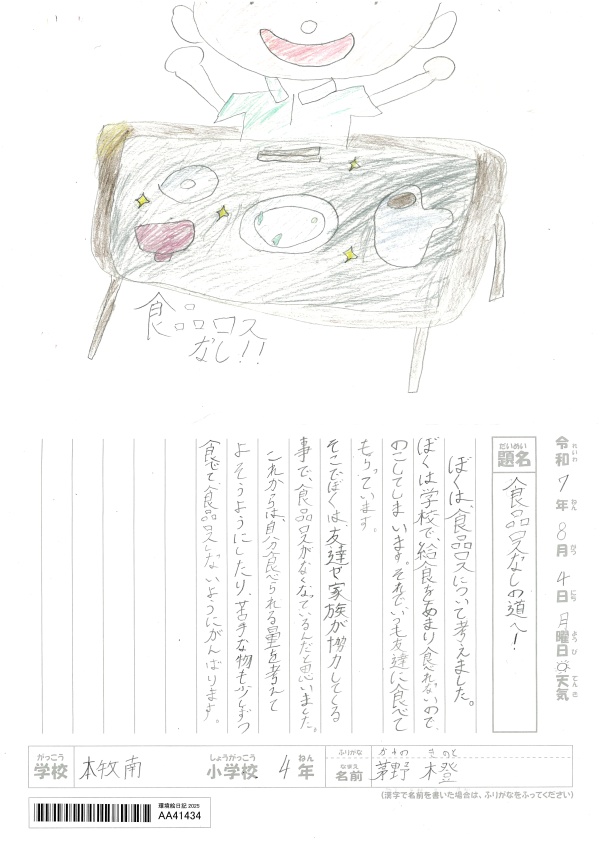 食品ロス
なし!!
令和7年8月4日月曜日天気
れいわ ねん がつ にち ようび てんき
だいめい
題名
食品ロスなしの道へ!
ぼくは、食品ロスについて考えました。
ぼくは学校で、給食をあまり食れないので
のこしてしまいます。それでいつも友達に食べて
もらっています。
そこでぼくは、友達や家族が協力してくる
事で、食品ロスがなくなているんだと思いました。
これからは、自分食べられる量を考えて
よそうようにしたり、苦手な物も少しずつ
食べて、食品ロスしないようにがんばります。
がっこう しょうがっこう ねん ふりがな かやの きのと
学校 本牧南 小学校 4年 なまえ 名前 茅野 橙
(漢字で名前を書いた場合は、ふりがなをふってください)
環境絵日記2025
AA41434